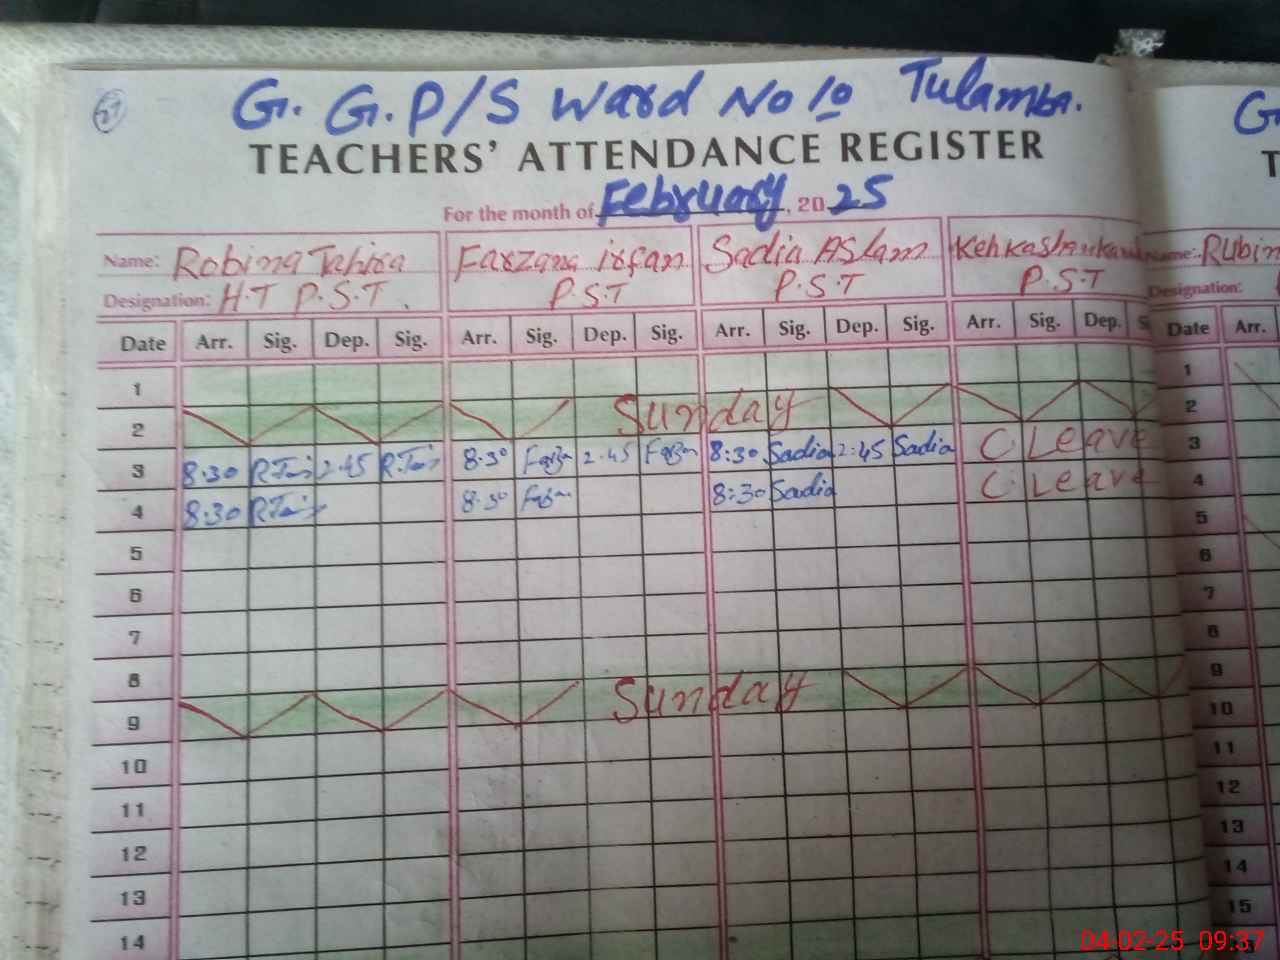 21
G. G. P/S Ward No 10 Tulamba.
TEACHERS' ATTENDANCE REGISTER
For the month of February, 2025
Name: Robina Tahira Farzana irfan Sadia Aslam
Designation: H.T P.S.T. P.S.T P.S.T P.S.T
Date Arr. Sig. Dep. Sig. Arr. Sig. Dep. Sig. Arr. Sig. Dep. Sig. Arr. Sig. Dep.
1
2 Sunday
3 8.30 2.45 8.30 2.45 8:30 Sadia 2:45 Sadia C Leave
4 8.30 8.30 8:30 Sadia C Leave
5
6
7
8
9 Sunday
10
11
12
13
14
Name: Rubin
Designation:
Date Arr.
1
2
3
4
5
6
7
8
9
10
11
12
13
14
15
04-02-25 09:37